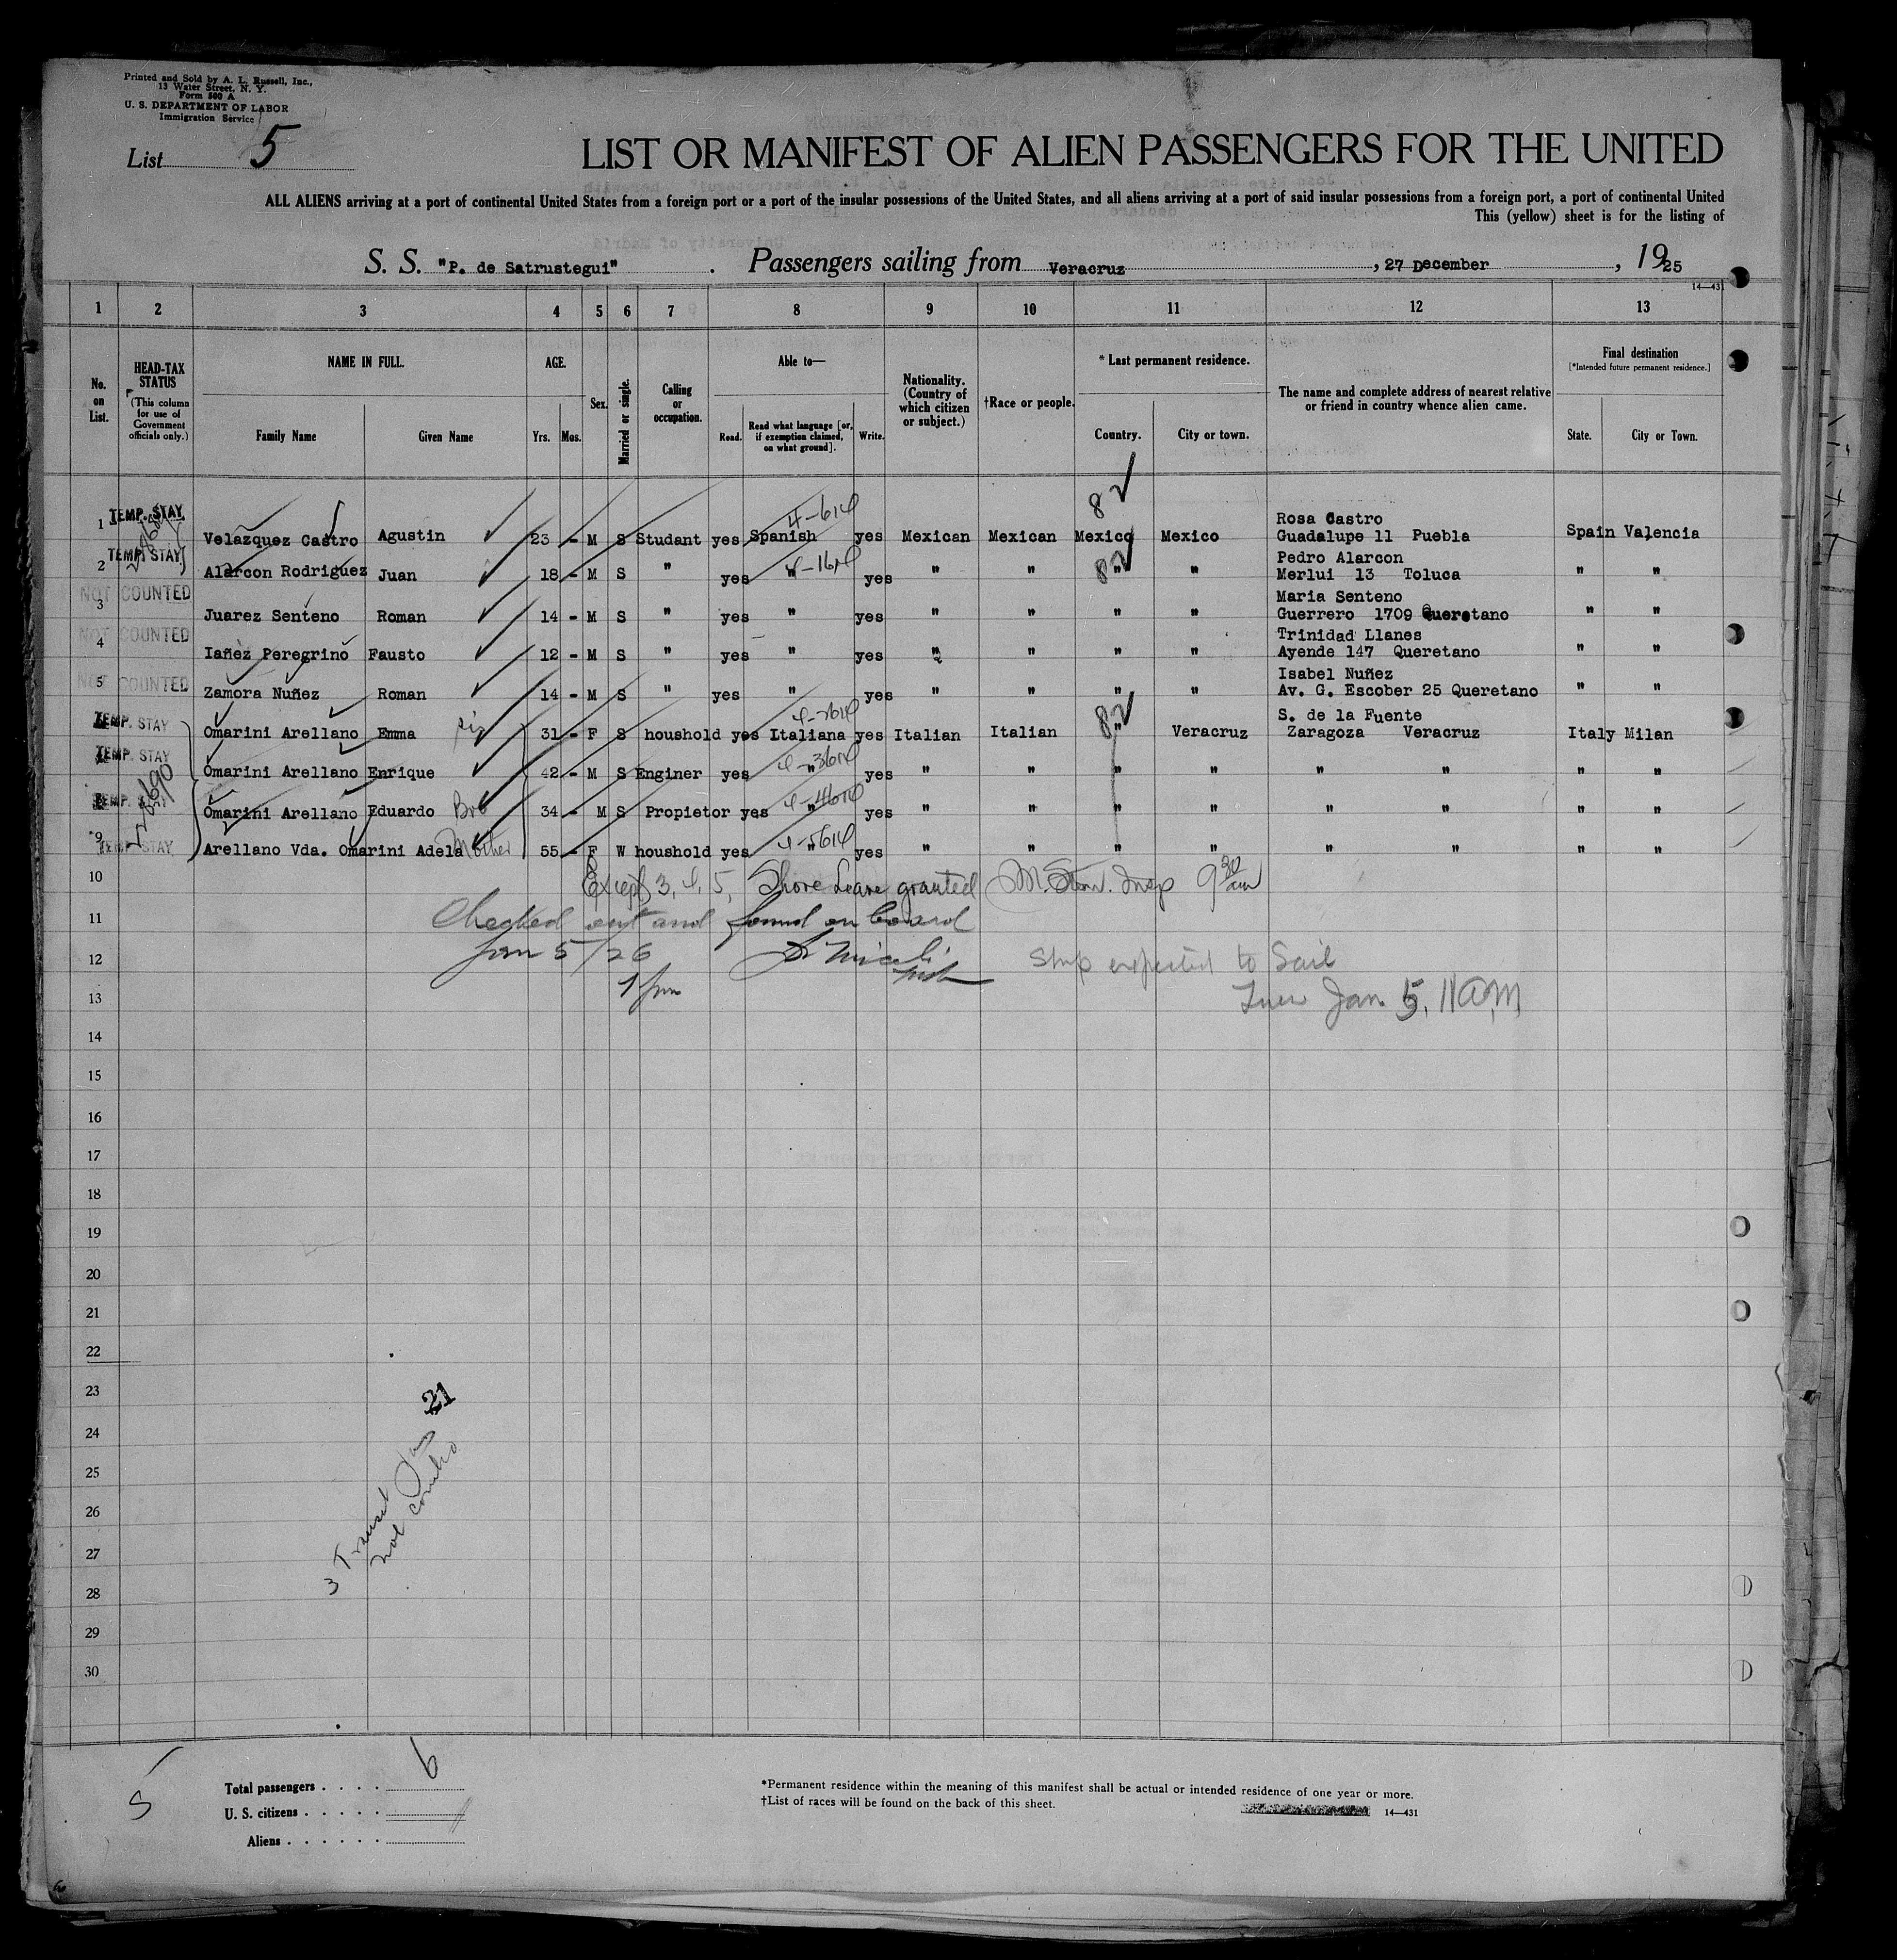 Printed and Sold by A. L. Russell, Inc.,
13 Water Street, N. Y.
Form 500 A
U. S. DEPARTMENT OF LABOR
Immigration Service
List 5
LIST OR MANIFEST OF ALIEN PASSENGERS FOR THE UNITED
ALL ALIENS arriving at a port of continental United States from a foreign port or a port of the insular possessions of the United States, and all aliens arriving at a port of said insular possessions from a foreign port, a port of continental United
This (yellow) sheet is for the listing of
S. S. "P. de Satrustegui" . Passengers sailing from Veracruz , 27 December , 1925
14—431
1 2 3 4 5 6 7 8 9 10 11 12 13
No. on List.
HEAD-TAX STATUS
(This column for use of Government officials only.)
NAME IN FULL.
Family Name Given Name
AGE.
Yrs. Mos.
Sex.
Married or single.
Calling or occupation.
Able to—
Read. Read what language [or, if exemption claimed, on what ground]. Write.
Nationality. (Country of which citizen or subject.)
†Race or people.
* Last permanent residence.
Country. City or town.
The name and complete address of nearest relative or friend in country whence alien came.
Final destination
[*Intended future permanent residence.]
State. City or Town.
82
4-61
TEMP. STAY Rosa Castro
1 Velazquez Castro Agustin 23 - M S Studant yes Spanish yes Mexican Mexican Mexico Mexico Guadalupe 11 Puebla Spain Valencia
82
TEMP. STAY Pedro Alarcon
2 Alarcon Rodriguez Juan 18 - M S " yes " yes " " " " Merlui 13 Toluca " "
NOT COUNTED Maria Senteno
3 Juarez Senteno Roman 14 - M S " yes " yes " " " " Guerrero 1709 Queretano " "
NOT COUNTED Trinidad Llanes
4 Iañez Peregrino Fausto 12 - M S " yes " yes " " " " Ayende 147 Queretano " "
NOT COUNTED Isabel Nuñez
5 Zamora Nuñez Roman 14 - M S " yes " yes " " " " Av. G. Escober 25 Queretano " "
82
TEMP. STAY S. de la Fuente
Omarini Arellano Emma 31 - F S houshold yes Italiana yes Italian Italian " Veracruz Zaragoza Veracruz Italy Milan
TEMP. STAY
Omarini Arellano Enrique 42 - M S Enginer yes " yes " " " " " " " "
TEMP. STAY
Omarini Arellano Eduardo Bro 34 - M S Propietor yes " yes " " " " " " " "
9 TEMP. STAY
Arellano Vda. Omarini Adela Mother 55 - F W houshold yes " yes " " " " " " " "
10 Except 3, 4, 5, Shore Leave granted Insp 9 30 am
11 Checked out and found on board
12 Jan 5/26 Ship expected to Sail
13 1 pm Tues Jan. 5, 11 A.M.
14
15
16
17
18
19
20
21
22
23
24
25
26
27
28
29
30
21
3 Transit
not counted
5
Total passengers . . . . 6
U. S. citizens . . . . .
Aliens . . . . . .
*Permanent residence within the meaning of this manifest shall be actual or intended residence of one year or more.
†List of races will be found on the back of this sheet.
14—431